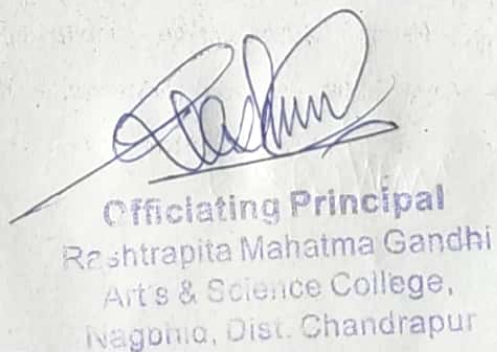 Officiating Principal
Rashtrapita Mahatma Gandhi
Art's & Science College,
Dist. Chandrapur